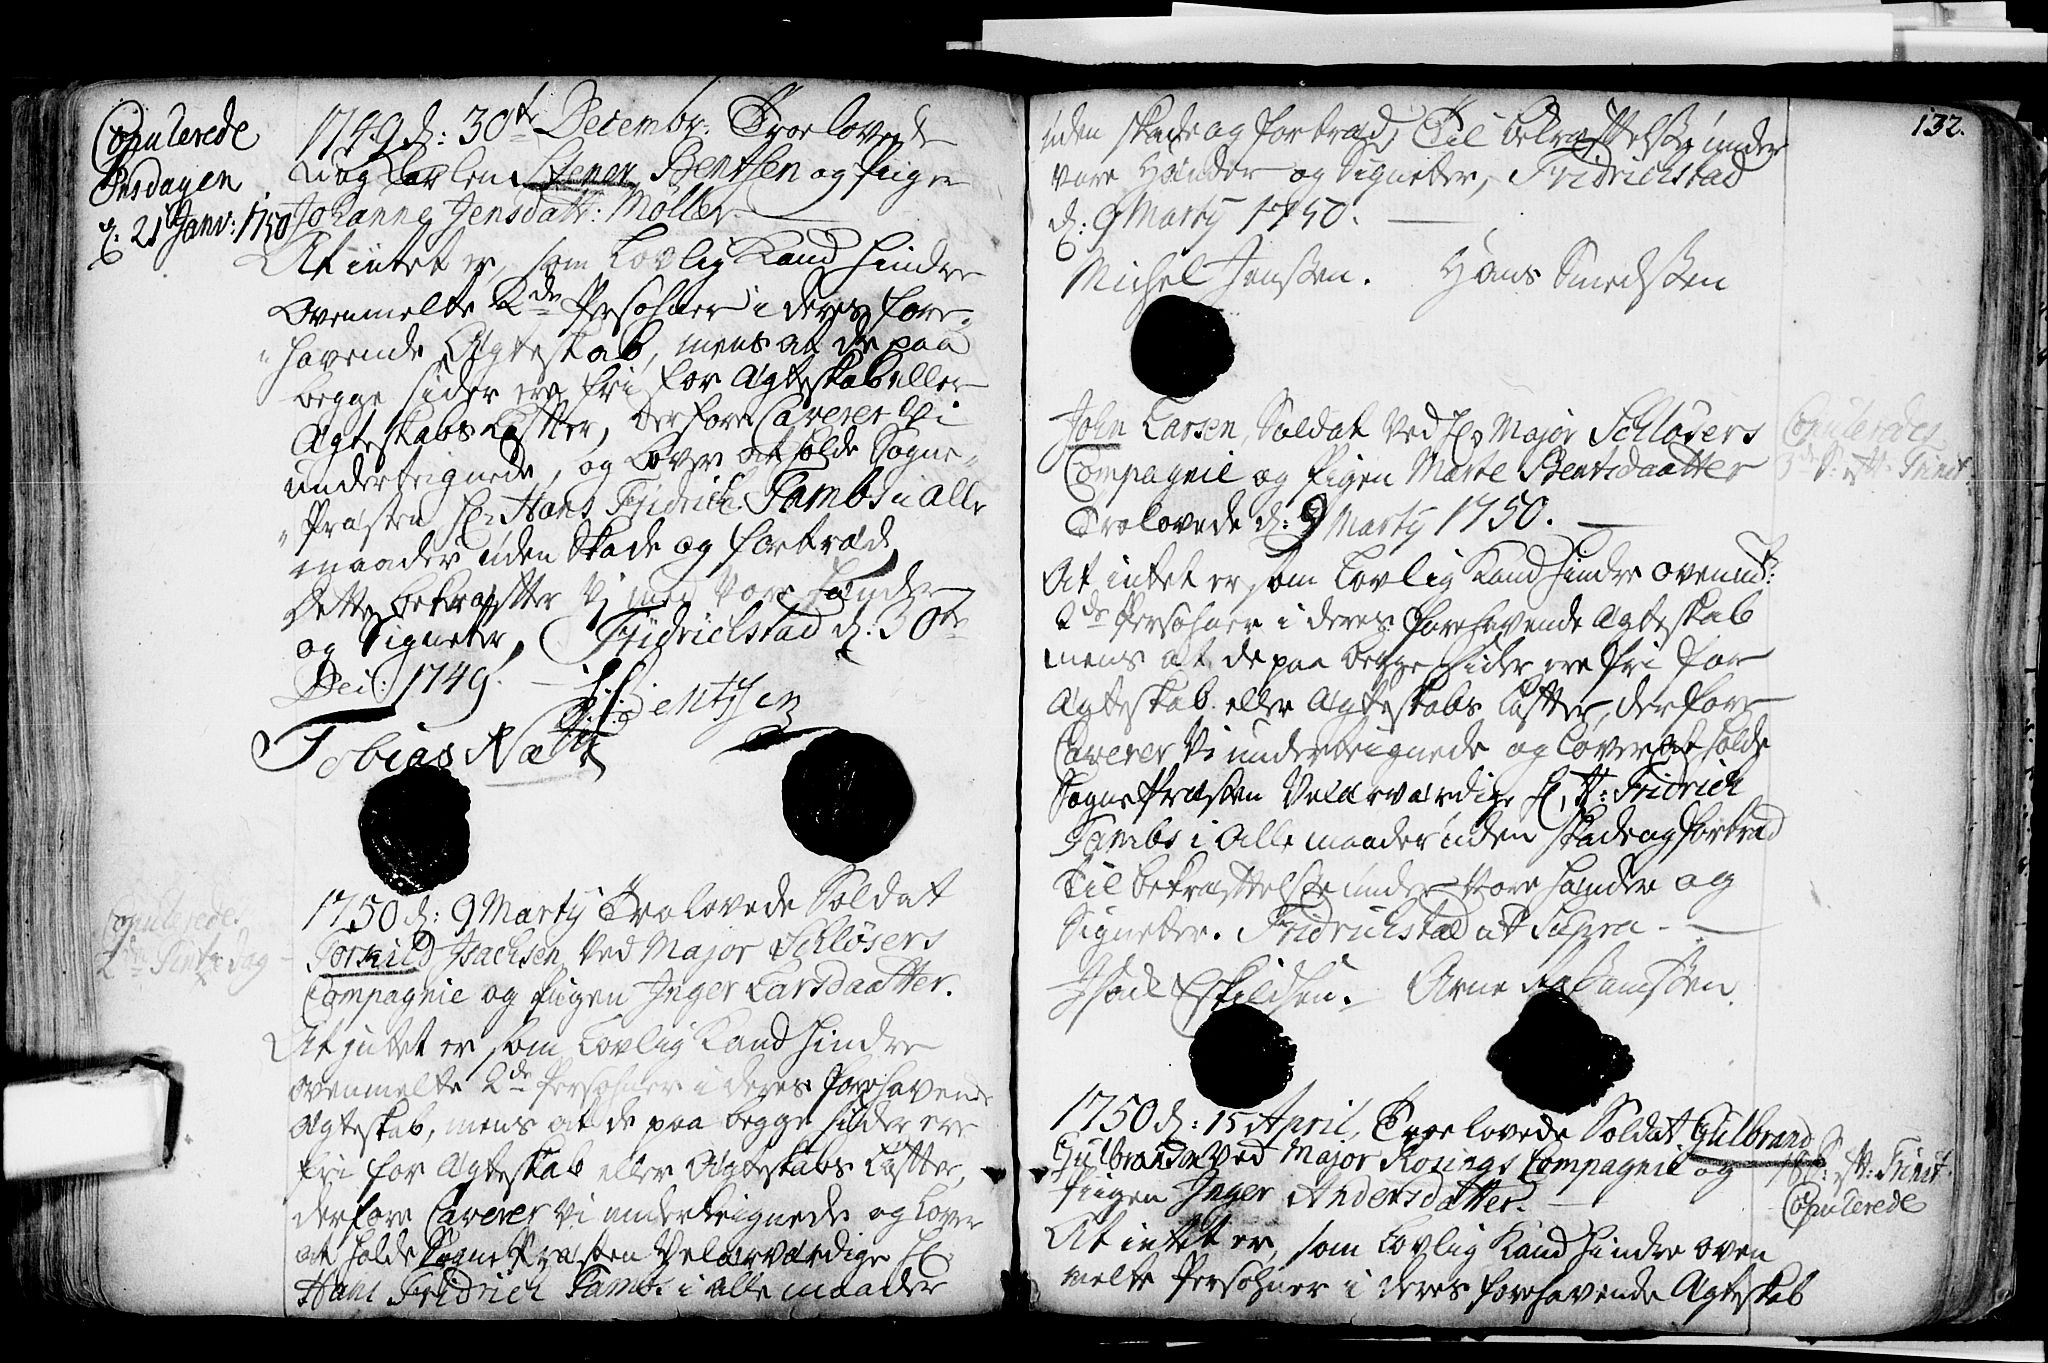 Copulerede
Onsdagen
d: 21 Janv: 1750
1749 d: 30te Decembr. Troelovede
Stener Bentsen og Pigen
Johanne Jensdatt: Möller
At intet er, som Lovlig Kand hindre
Ovenmelte 2de Persohner i deres fore-
havende Ægteskab, mens at de paa
begge sider ere fri for Ægteskab eller
Ægteskabs Løffter, derfore Caverer Vi
underteignede, og Lover at holde Sogne-
Præsten Hr Hans Fridrich Tambs i Alle
maader uden Skade og fortræd,
Dette bekræffter Vi med Vore Hænder
og Signeter, Fridrichstad d. 30te
Dec: 1749.
Bentsen
Tobias
Copulerede
2den Pintzedag
1750 d: 9 Marty Trolovede Soldat
Torkild Isachsen Ved Major Schløsers
Compagnie og Pigen Inger Larsdaatter.
At intet er som Lovlig Kand hindre
ovenmelte 2de Persohner i deres forehavende
Ægteskab, mens at de paa begge sider ere
fri for Ægteskab eller Ægteskabs Løffter,
derfore Caverer Vi underteignede og Lover
at holde Sogne Præsten Velærværdige Hr
Hans Fridrich Tambs i alle maader
132.
uden skade og fortræd, Til bekræfftelse under
vore Hænder og Signeter, Fridrichstad
d: 9 Marty 1750.
Michel Jenssen. Hans Smedssen
John Larsen, Soldat Ved Hr Major Schløsers
Compagnie og Pigen Marte Bentsdaatter
Trolovede d: 9 Marty 1750.
Copuleredes
3de S. efft. Trinit.
At intet er som Lovlig Kand hindre ovenmt:
2de Persohner i deres forehavende Ægteskab
mens at de paa begge sider ere fri for
Ægteskab eller Ægteskabs Løffter, derfore
Caverer Vi underteignede og Lover at holde
Sogne Præsten Velærværdige Hr H: Fridrich
Tambs i Alle maader uden skade og fortræd
Til bekræfftelse under Vore hænder og
Signeter. Fridrichstad ut Supra.
Isach Eskildsen. Arne Samssen
1750 d: 15 April, Troelovede Soldat Gulbrand
Gulbrandsen Ved Major Rosings Compagnie og
Pigen Inger Andersdatter.
S: efft: Trinit.
Copulerede
At intet er, som Lovlig Kand hindre oven
melte Persohner i deres forehavende Ægteskab